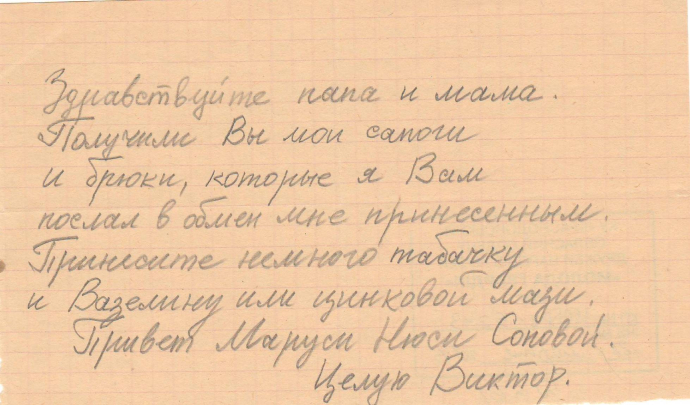 Здравствуйте папа и мама.
Получили Вы мои сапоги
и брюки, которые я Вам
послал в обмен мне принесенным.
Принесите немного табачку
и Вазелину или цинковой мази.
Привет Маруси Нюси Соповой.
Целую Виктор.